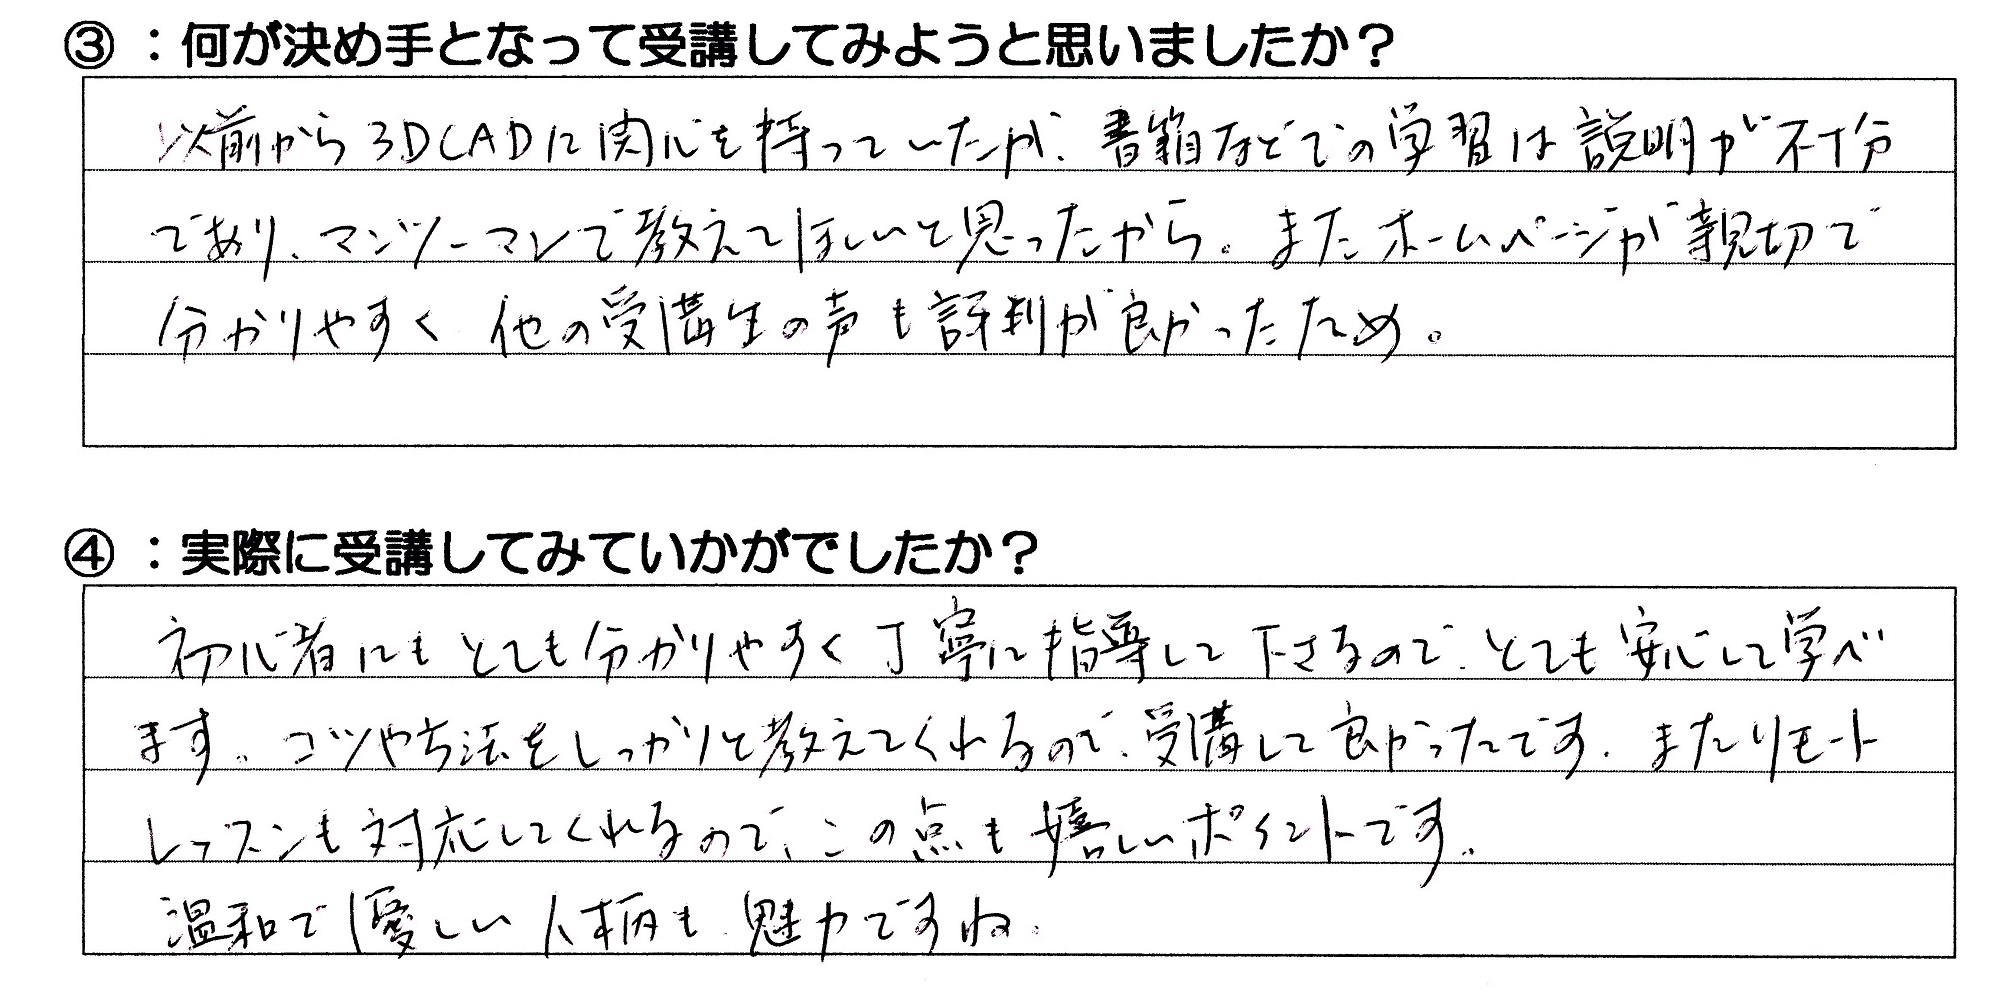 ③：何が決め手となって受講してみようと思いましたか？
以前から3DCADに関心を持っていたが、書籍などでの学習は説明が不十分
であり、マンツーマンで教えてほしいと思ったから。またホームページが親切で
分かりやすく他の受講生の声も評判が良かったため。
④：実際に受講してみていかがでしたか？
初心者にもとても分かりやすく丁寧に指導して下さるので、とても安心して学べ
ます。コツや方法をしっかりと教えてくれるので、受講して良かったです。またリモート
レッスンも対応してくれるので、この点も嬉しいポイントです。
温和で優しい人柄も魅力ですね。